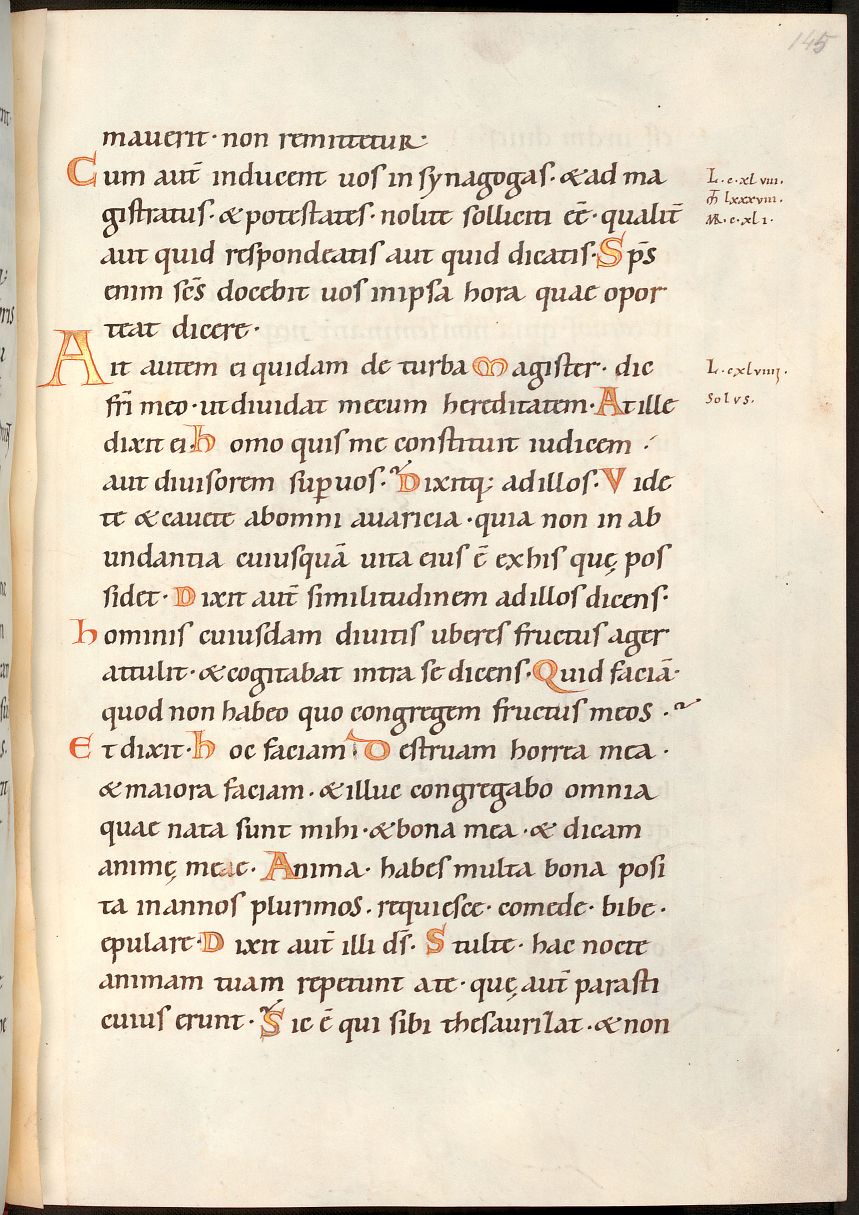 145
mauerit · non remittetur ·
Cum aut̄ inducent uos in synagogas · & ad ma
gistratus · & potestates · nolite solliciti eē · qualit̄
aut quid respondeatis aut quid dicatis · Sp̄s
enim sc̄s docebit uos in ipsa hora quae opor
teat dicere ·
Ait autem ei quidam de turba Magister · dic
fr̄i meo · ut diuidat mecum hereditatem · At ille
dixit ei · homo quis me constituit iudicem
aut diuisorem sup̱ uos · Dixitq; ad illos · Vide
te & cauete ab omni auaricia · quia non in ab
undantia cuiusquā uita eius ē ex his quę pos
sidet · Dixit aut̄ similitudinem ad illos dicens ·
hominis cuiusdam diuitis uberes fructus ager
attulit · & cogitabat intra se dicens · Quid faciā ·
quod non habeo quo congregem fructus meos ·
Et dixit · hoc faciam Destruam horrea mea ·
& maiora faciam · & illuc congregabo omnia
quae nata sunt mihi · & bona mea · & dicam
animę meae · Anima · habes multa bona posi
ta in annos plurimos · requiesce · comede · bibe ·
epulare · Dixit aut̄ illi d̄s · Stulte · hac nocte
animam tuam repetunt a te · quę aut̄ parasti
cuius erunt · Sic ē qui sibi thesaurizat · & non
L · c · xl viii ·
lxxxviii ·
MR · c · xl i ·
L · cxlviiii ·
Solus ·